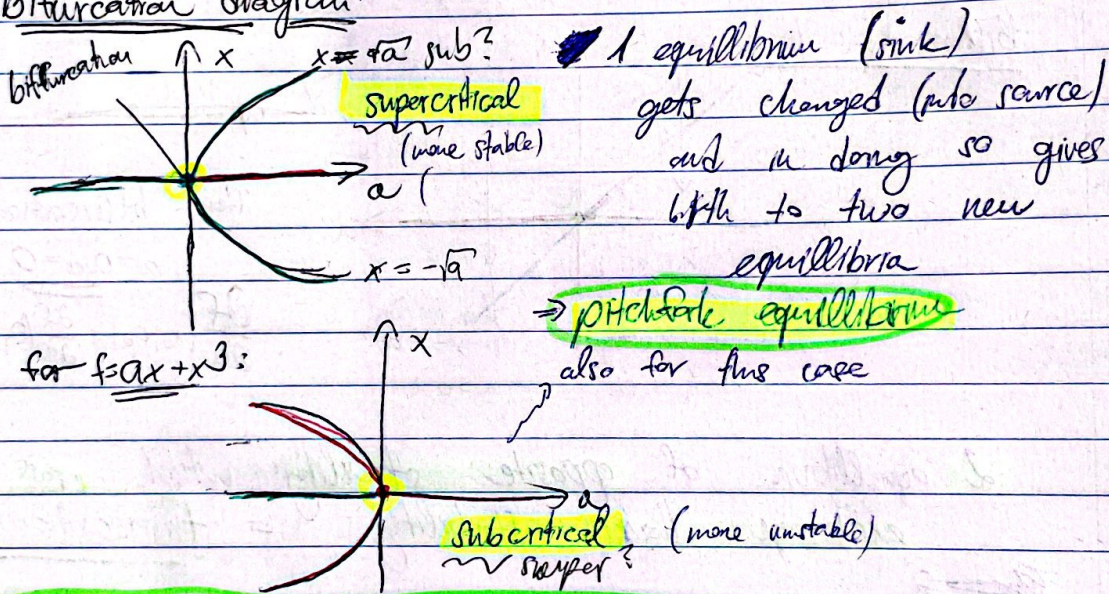 Bifurcation diagram
biffurcation
x
x = √a sub?
supercritical
(more stable)
a (
x = -√a
1 equillibrium (sink)
gets changed (into source)
and in doing so gives
birth to two new
equillibria
⇒ pitchfork equillibrium
also for this case
for f=ax+x³:
x
a
subcritical (more unstable)
super?